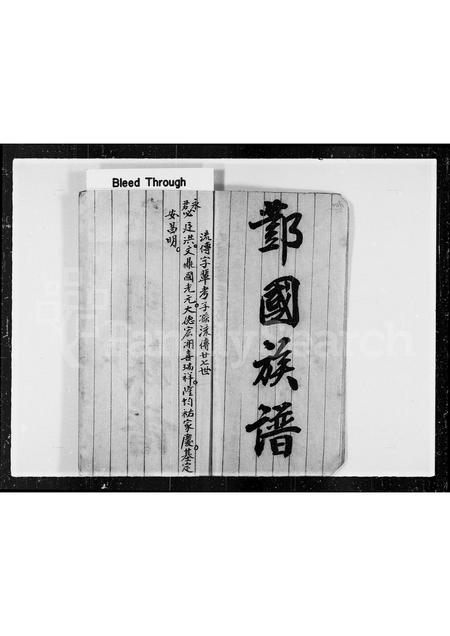 Bleed Through
鄷國族譜
流傳字輩考子孫流傳廿七世
永
君必廷洪文鼎國光元大德宏開喜瑞祥隆均祐家慶基定
安昌明